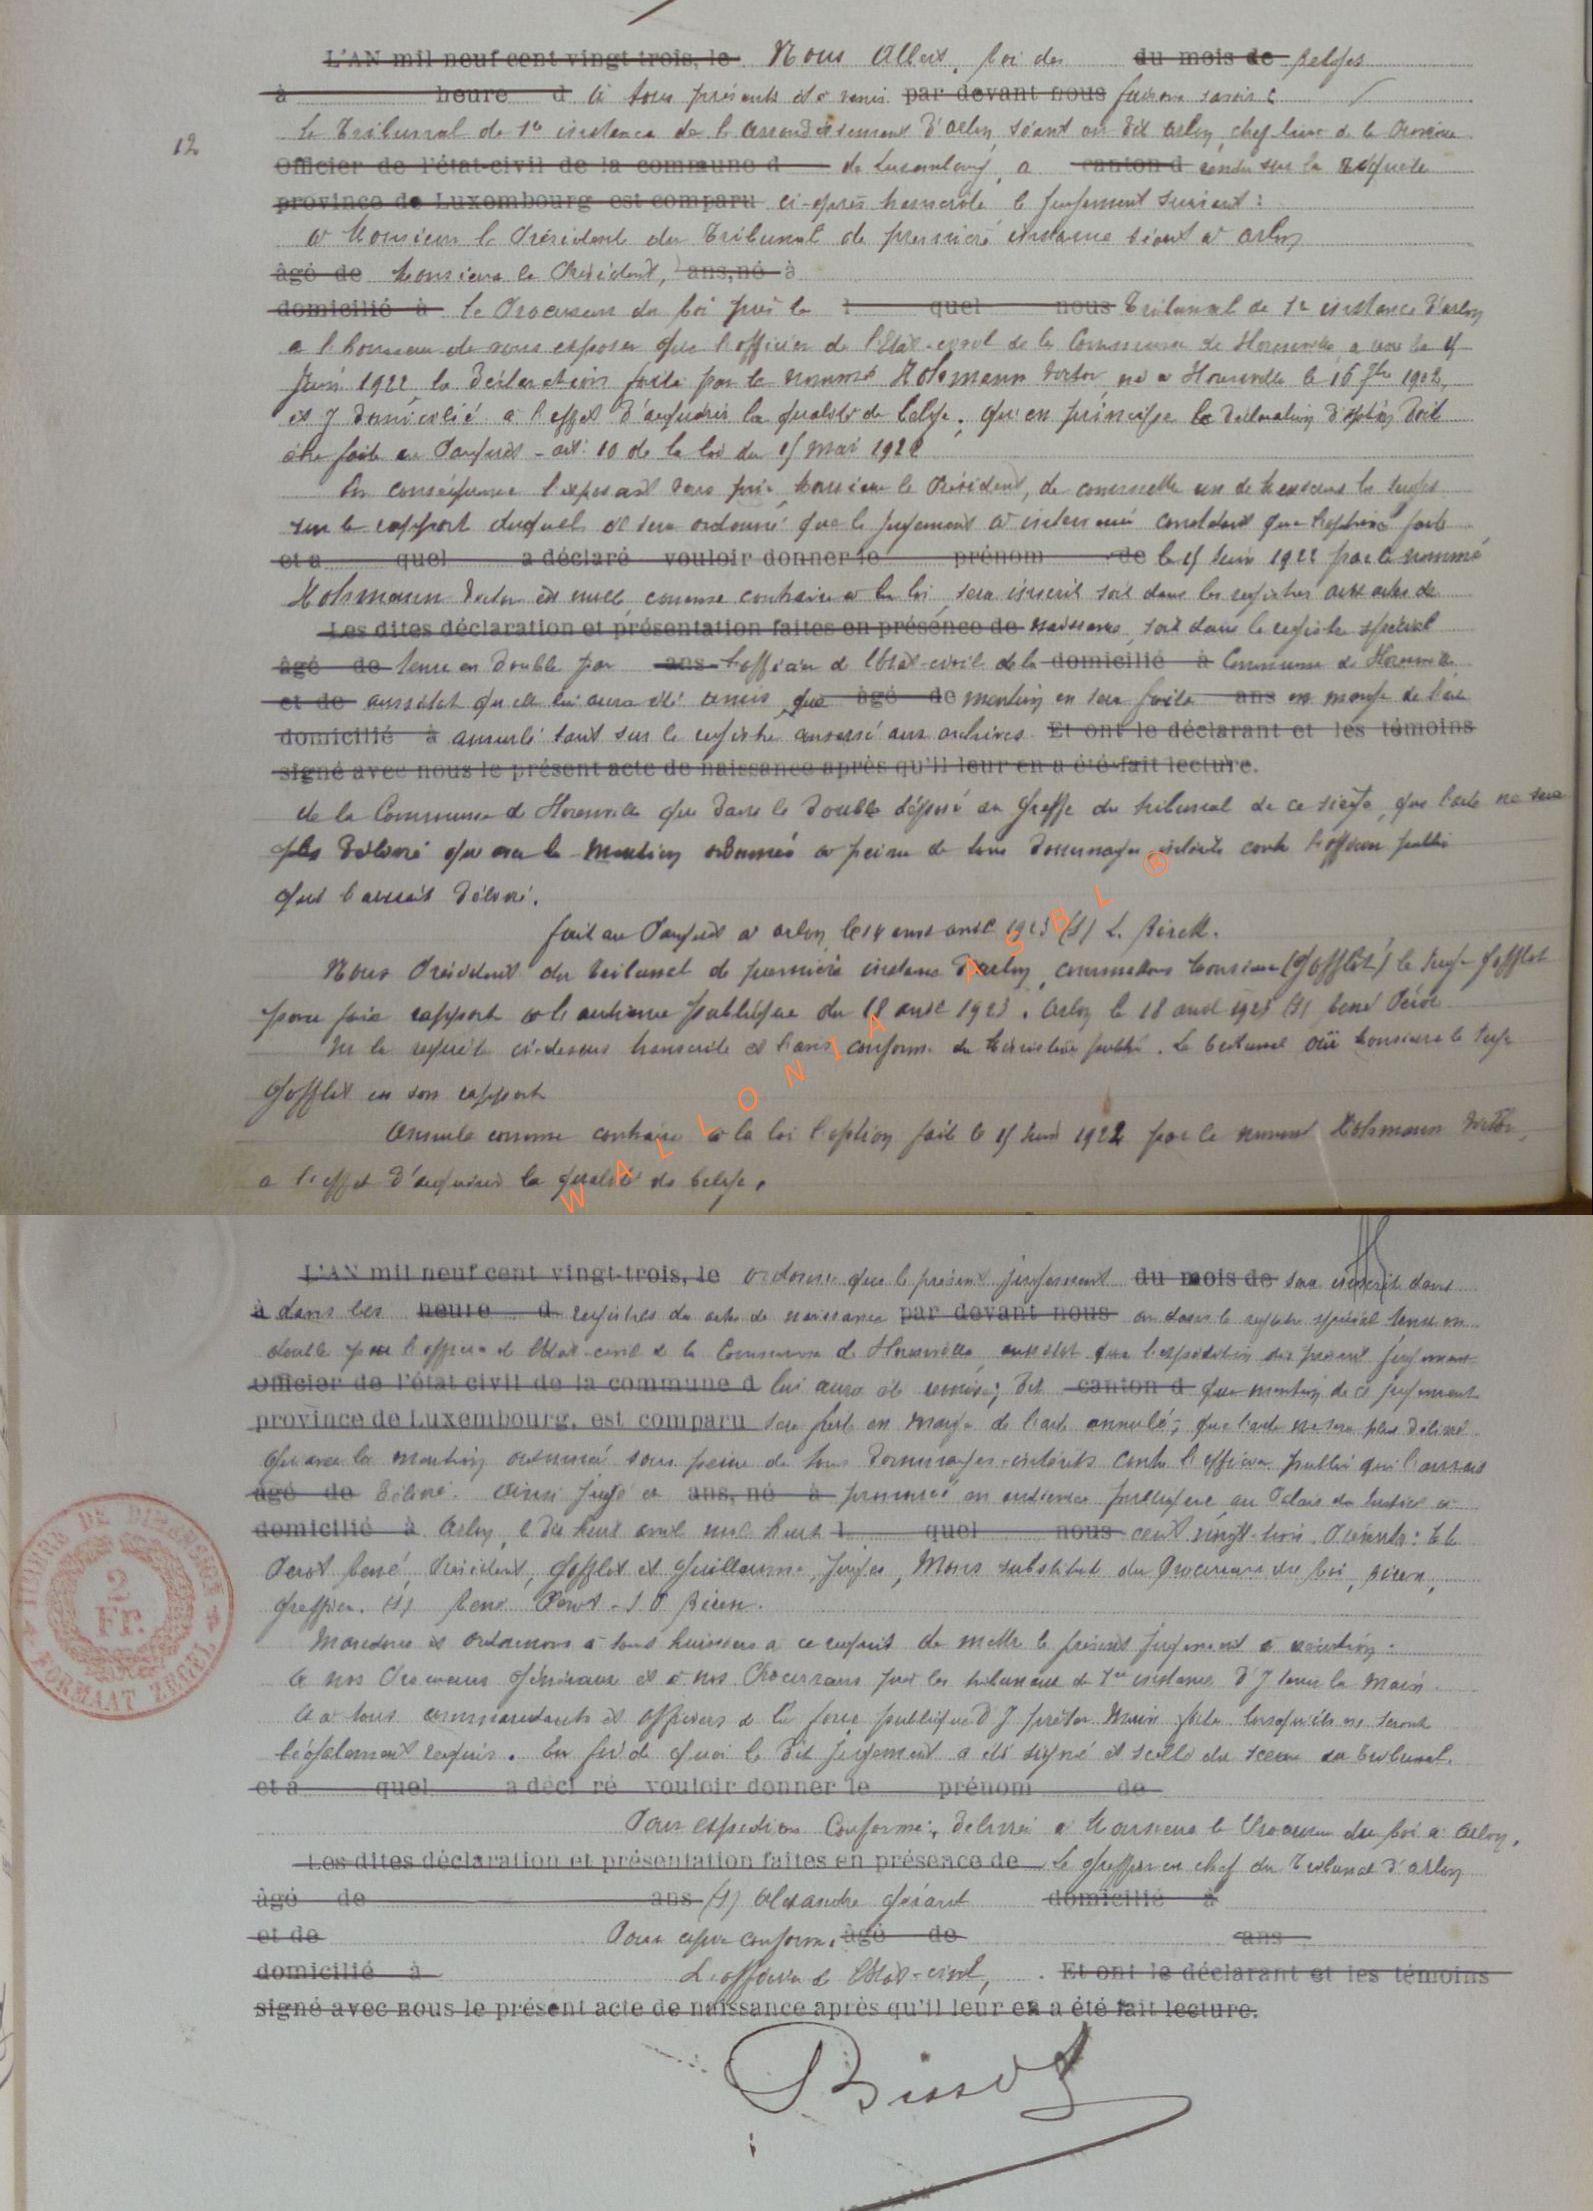 L'AN mil neuf cent vingt-trois, le Nous Albert, Roi des du mois de Belges
à heure d à tous présents et à venir par devant nous faisons savoir :
12
Le Tribunal de 1re instance de l'arrondissement d'Arlon, séant au dit Arlon, chef lieu de la Province
Officier de l'état-civil de la commune d de Luxembourg, a canton d rendu sur la requête
province de Luxembourg est comparu ci-après transcrite le jugement suivant :
à Monsieur le Président du Tribunal de première instance séant à Arlon
âgé de Monsieur le Président, ans, né à
domicilié à le Procureur du Roi près le l quel nous Tribunal de 1re instance d'Arlon
a l'honneur de vous exposer que l'officier de l'Etat-civil de la Commune de a reçu le
Juin 1922 la déclaration faite par le nommé Holsmann Victor né à le 16 7bre 1902,
et y domicilié à l'effet d'acquérir la qualité de belge ; qu'en principe la déclaration d'option doit
être faite au Parquet - art. 10 de la loi du 15 mai 1922
En conséquence l'exposant vous prie, Monsieur le Président, de commettre un de Messieurs les Juges
sur le rapport duquel il sera ordonné que le jugement à intervenir constatant que l'option faite
et a quel a déclaré vouloir donner le prénom de le 15 Juin 1922 par le nommé
Holsmann Victor est nulle comme contraire à la loi, sera inscrit soit dans les registres aux actes de
Les dites déclaration et présentation faites en présence de naissance, soit dans le registre spécial
âgé de tenu en double par ans l'officier de l'Etat-civil de la domicilié à Commune de
et de aussitôt qu'elle lui aura été remis, que âgé de mention en sera faite ans en marge de l'acte
domicilié à annulé tant sur le registre conservé aux archives Et ont le déclarant et les témoins
signé avec nous le présent acte de naissance après qu'il leur en a été fait lecture.
de la Commune de que dans le double déposé au Greffe du tribunal de ce siège, que l'acte ne sera
plus délivré qu'avec la mention ordonnée à peine de tous dommages-intérêts contre l'officier public
qui l'aurait délivré.
fait au Parquet à Arlon, le 14 avril 1923 (s)
Nous Président du tribunal de première instance d'Arlon, commettons Monsieur (Gofflot) le Juge Gofflot
pour faire rapport à l'audience publique du 18 avril 1923. Arlon le 18 avril 1923 (s) René Pérot
Vu la requête ci-dessus transcrite et l'avis conforme du Ministère public. Le tribunal ouï Monsieur le Juge
Gofflot en son rapport
Annule comme contraire à la loi l'option faite le 15 Juin 1922 par le nommé Holsmann Victor,
à l'effet d'acquérir la qualité de belge.
WALLONIA ASBL ®
L'AN mil neuf cent vingt-trois, le ordonne que le présent jugement du mois de sera inscrit dans
à dans les heure d registres des actes de naissance par devant nous ou dans le registre spécial tenu en
double par l'officier de l'Etat-civil de la Commune de aussitôt que l'expédition du présent jugement
Officier de l'état civil de la commune d lui aura été remise ; dit canton d que mention de ce jugement
province de Luxembourg, est comparu sera faite en marge de l'acte annulé ; que l'acte ne sera plus délivré
qu'avec la mention ordonnée sous peine de tous dommages-intérêts contre l'officier public qui l'aurait
âgé de délivré. Ainsi jugé et ans, né à prononcé en audience publique au Palais de Justice à
domicilié à Arlon, le dix huit avril mil neuf l quel nous cent vingt-trois. Présents : MM
Pérot René, Président, Gofflot et Guillaume, Juges, substitut du Procureur du Roi,
greffier. (s) René Pérot -
Mandons et ordonnons à tous huissiers à ce requis de mettre le présent jugement à exécution.
A nos Procureurs généraux et à nos Procureurs près les tribunaux de 1re instance d'y tenir la main.
Et à tous commandants et officiers de la force publique d'y prêter main forte lorsqu'ils en seront
légalement requis. En foi de quoi le dit jugement a été signé et scellé du sceau du tribunal.
et a quel a décl ré vouloir donner le prénom de
Pour expédition conforme, délivrée à Monsieur le Procureur du Roi à Arlon,
Les dites déclaration et présentation faites en présence de Le greffier en chef du Tribunal d'Arlon
âgé de ans (s) Alexandre Gérard domicilié à
et de Pour copie conforme, âgé de ans
domicilié à L'officier de l'Etat-civil, Et ont le déclarant et les témoins
signé avec nous le présent acte de naissance après qu'il leur en a été fait lecture.
TIMBRE DE DIMENSION
2
FR.
FORMAAT ZEGEL